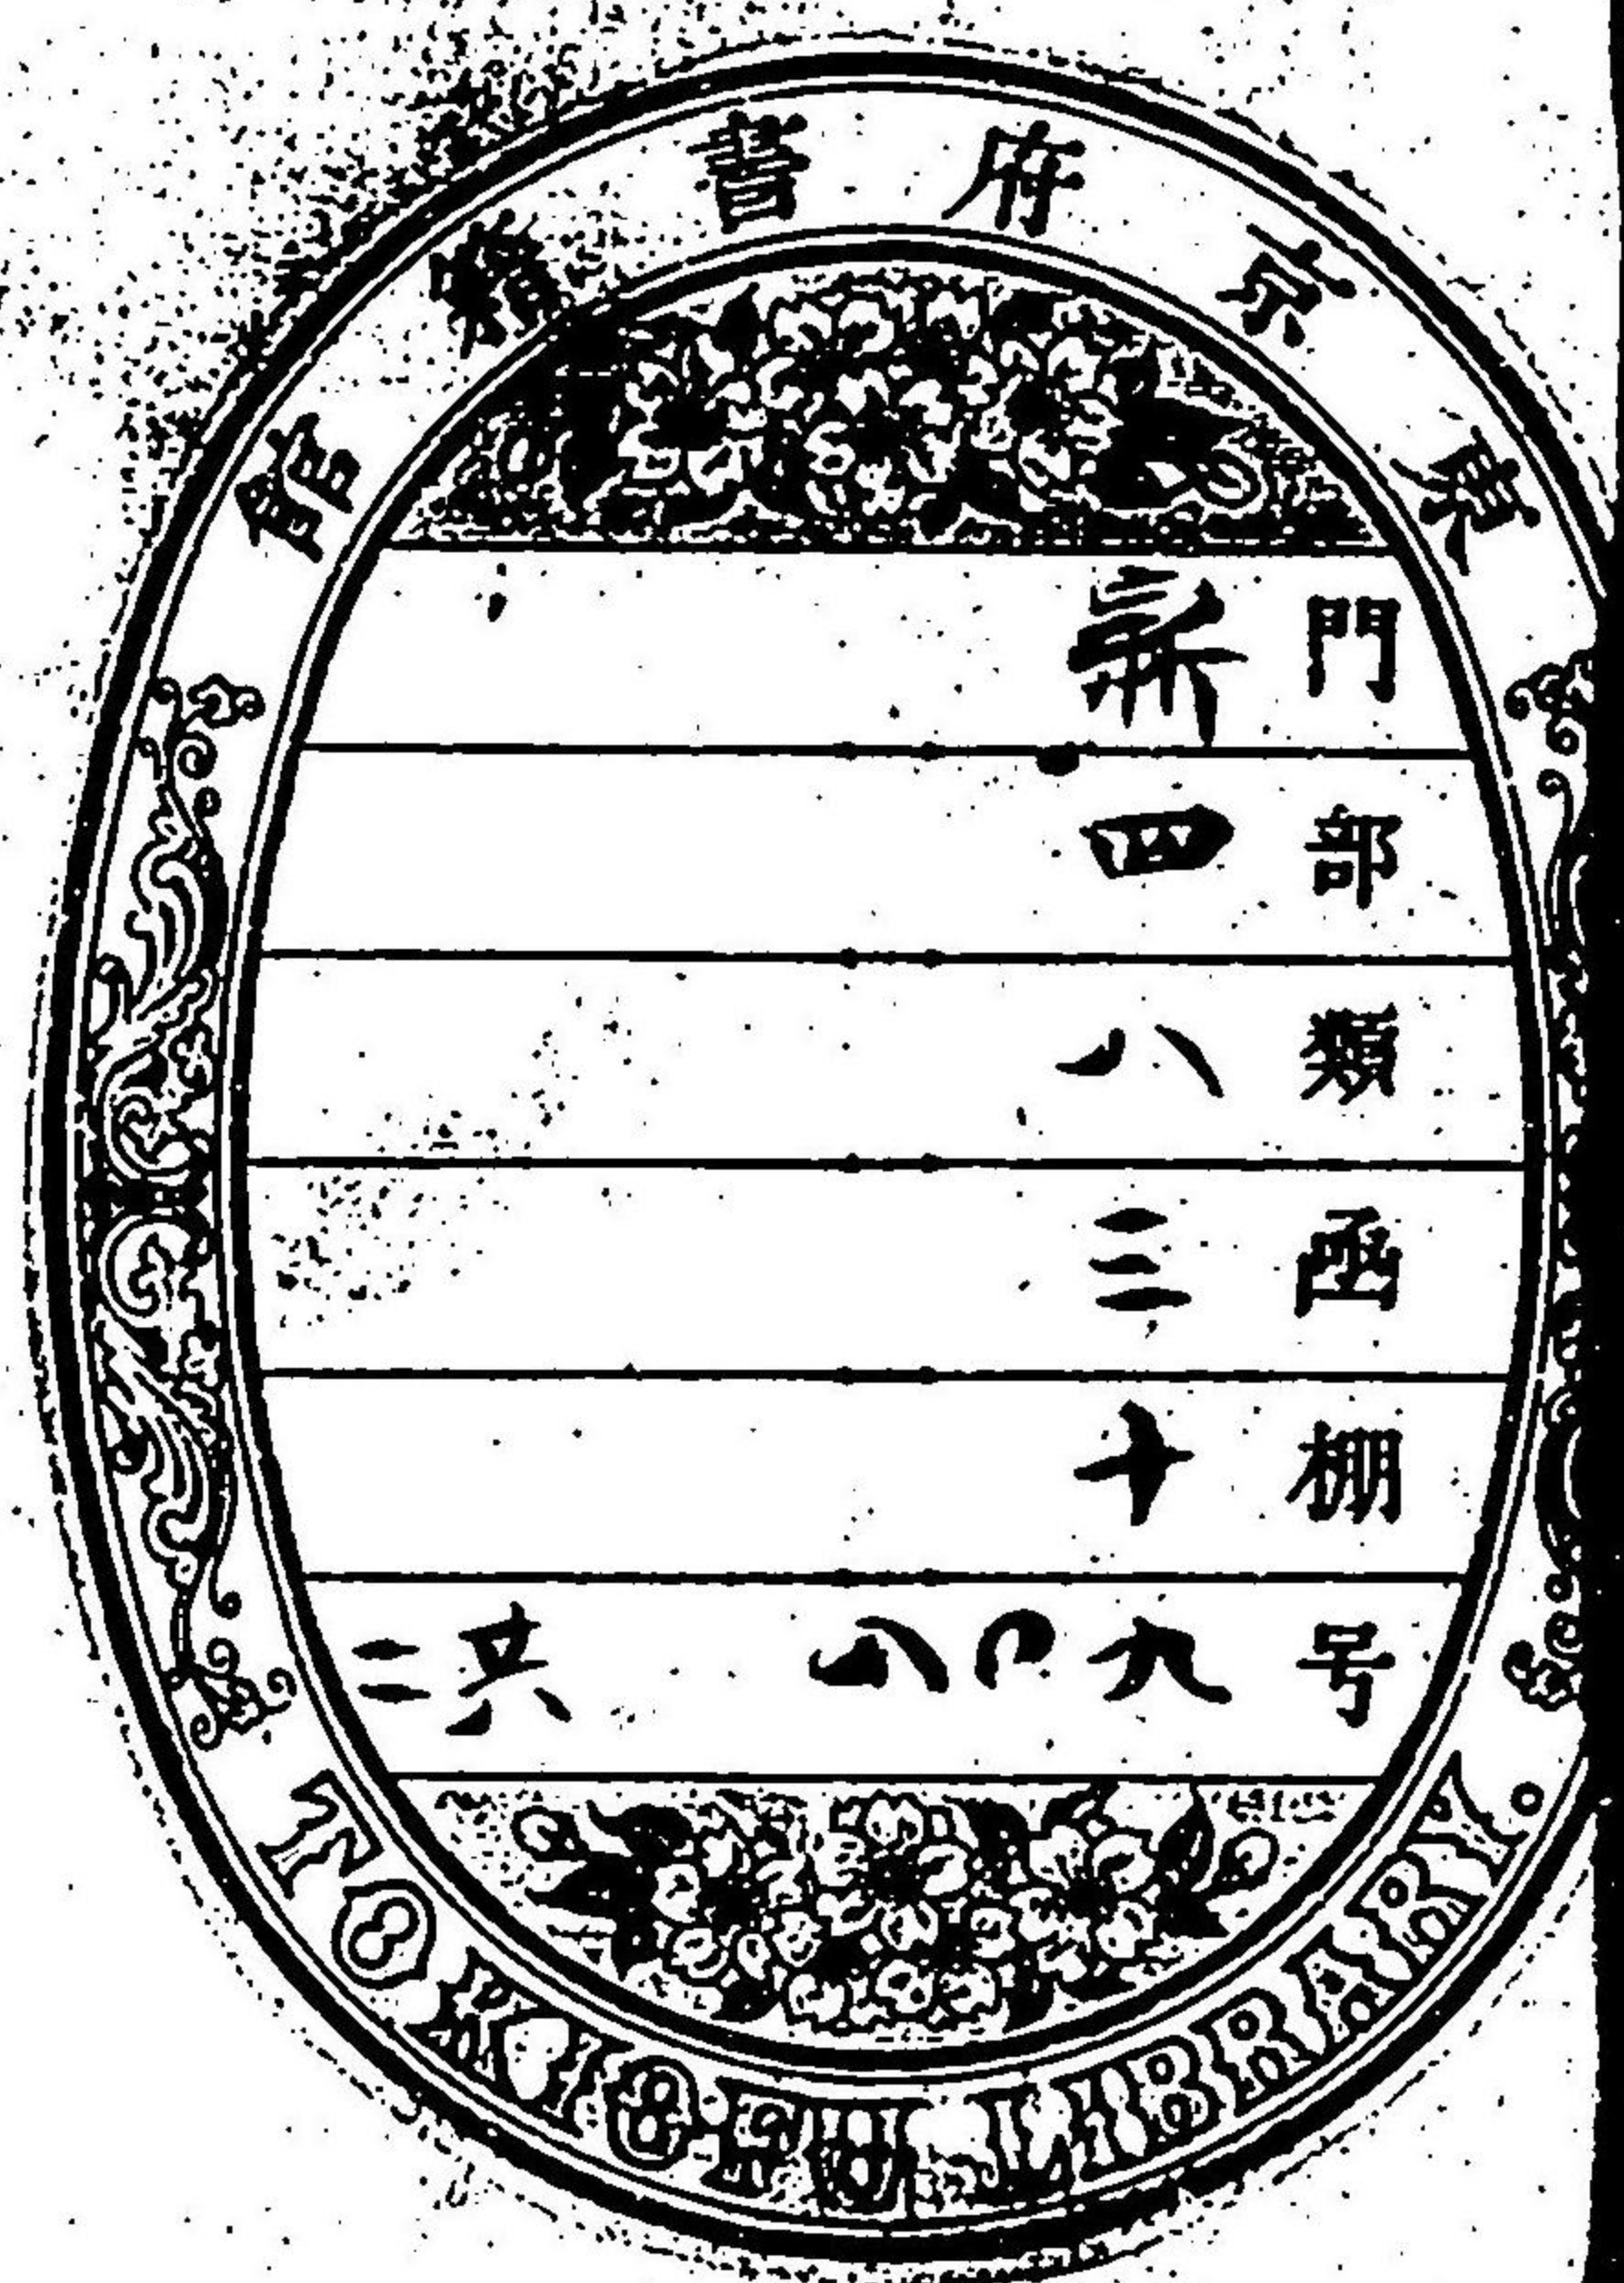 東京府書籍館
門 新
部 四
類 八
函 三
棚 十
号 九〇八 共二
TOKIO FU LIBRARY.